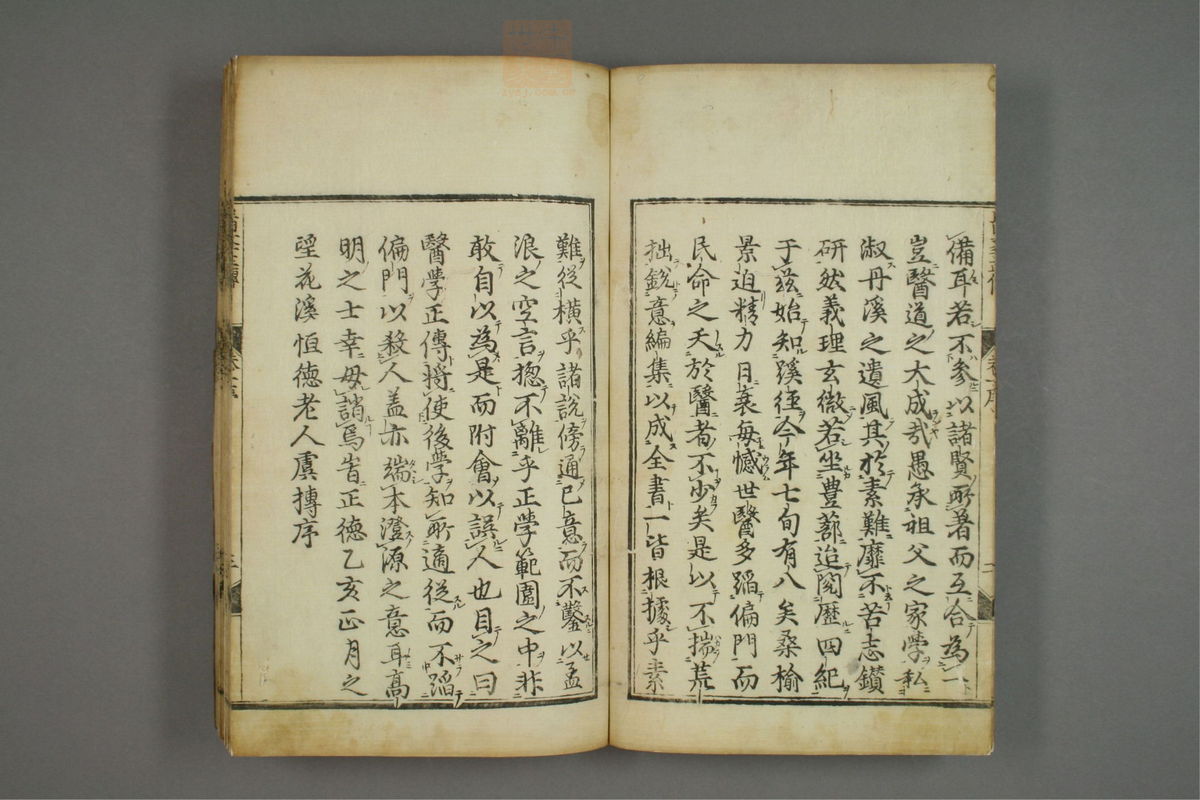 備耳若不參以諸賢所著而互合為一
豈醫道之大成哉愚承祖父之家學私
淑丹溪之遺風其於素難靡不苦志鑽
研然義理玄微若坐豊蔀迨閱歷四紀
于玆始知蹊徑今年七旬有八矣桑榆
景迫精力日衰每憾世醫多蹈偏門而
民命之夭於醫者不少矣是以不揣荒
拙銳意編集以成全書一皆根據乎素
難從橫乎諸說傍通己意而不鑿以孟
浪之空言揔不離乎正學範圍之中非
敢自以為是而附會以誤人也目之曰
醫學正傳將使後學知所適從而不蹈
偏門以殺人盖亦端本澄源之意耳高
明之士幸毋誚焉旹正德乙亥正月之
望花溪恒德老人虞摶序